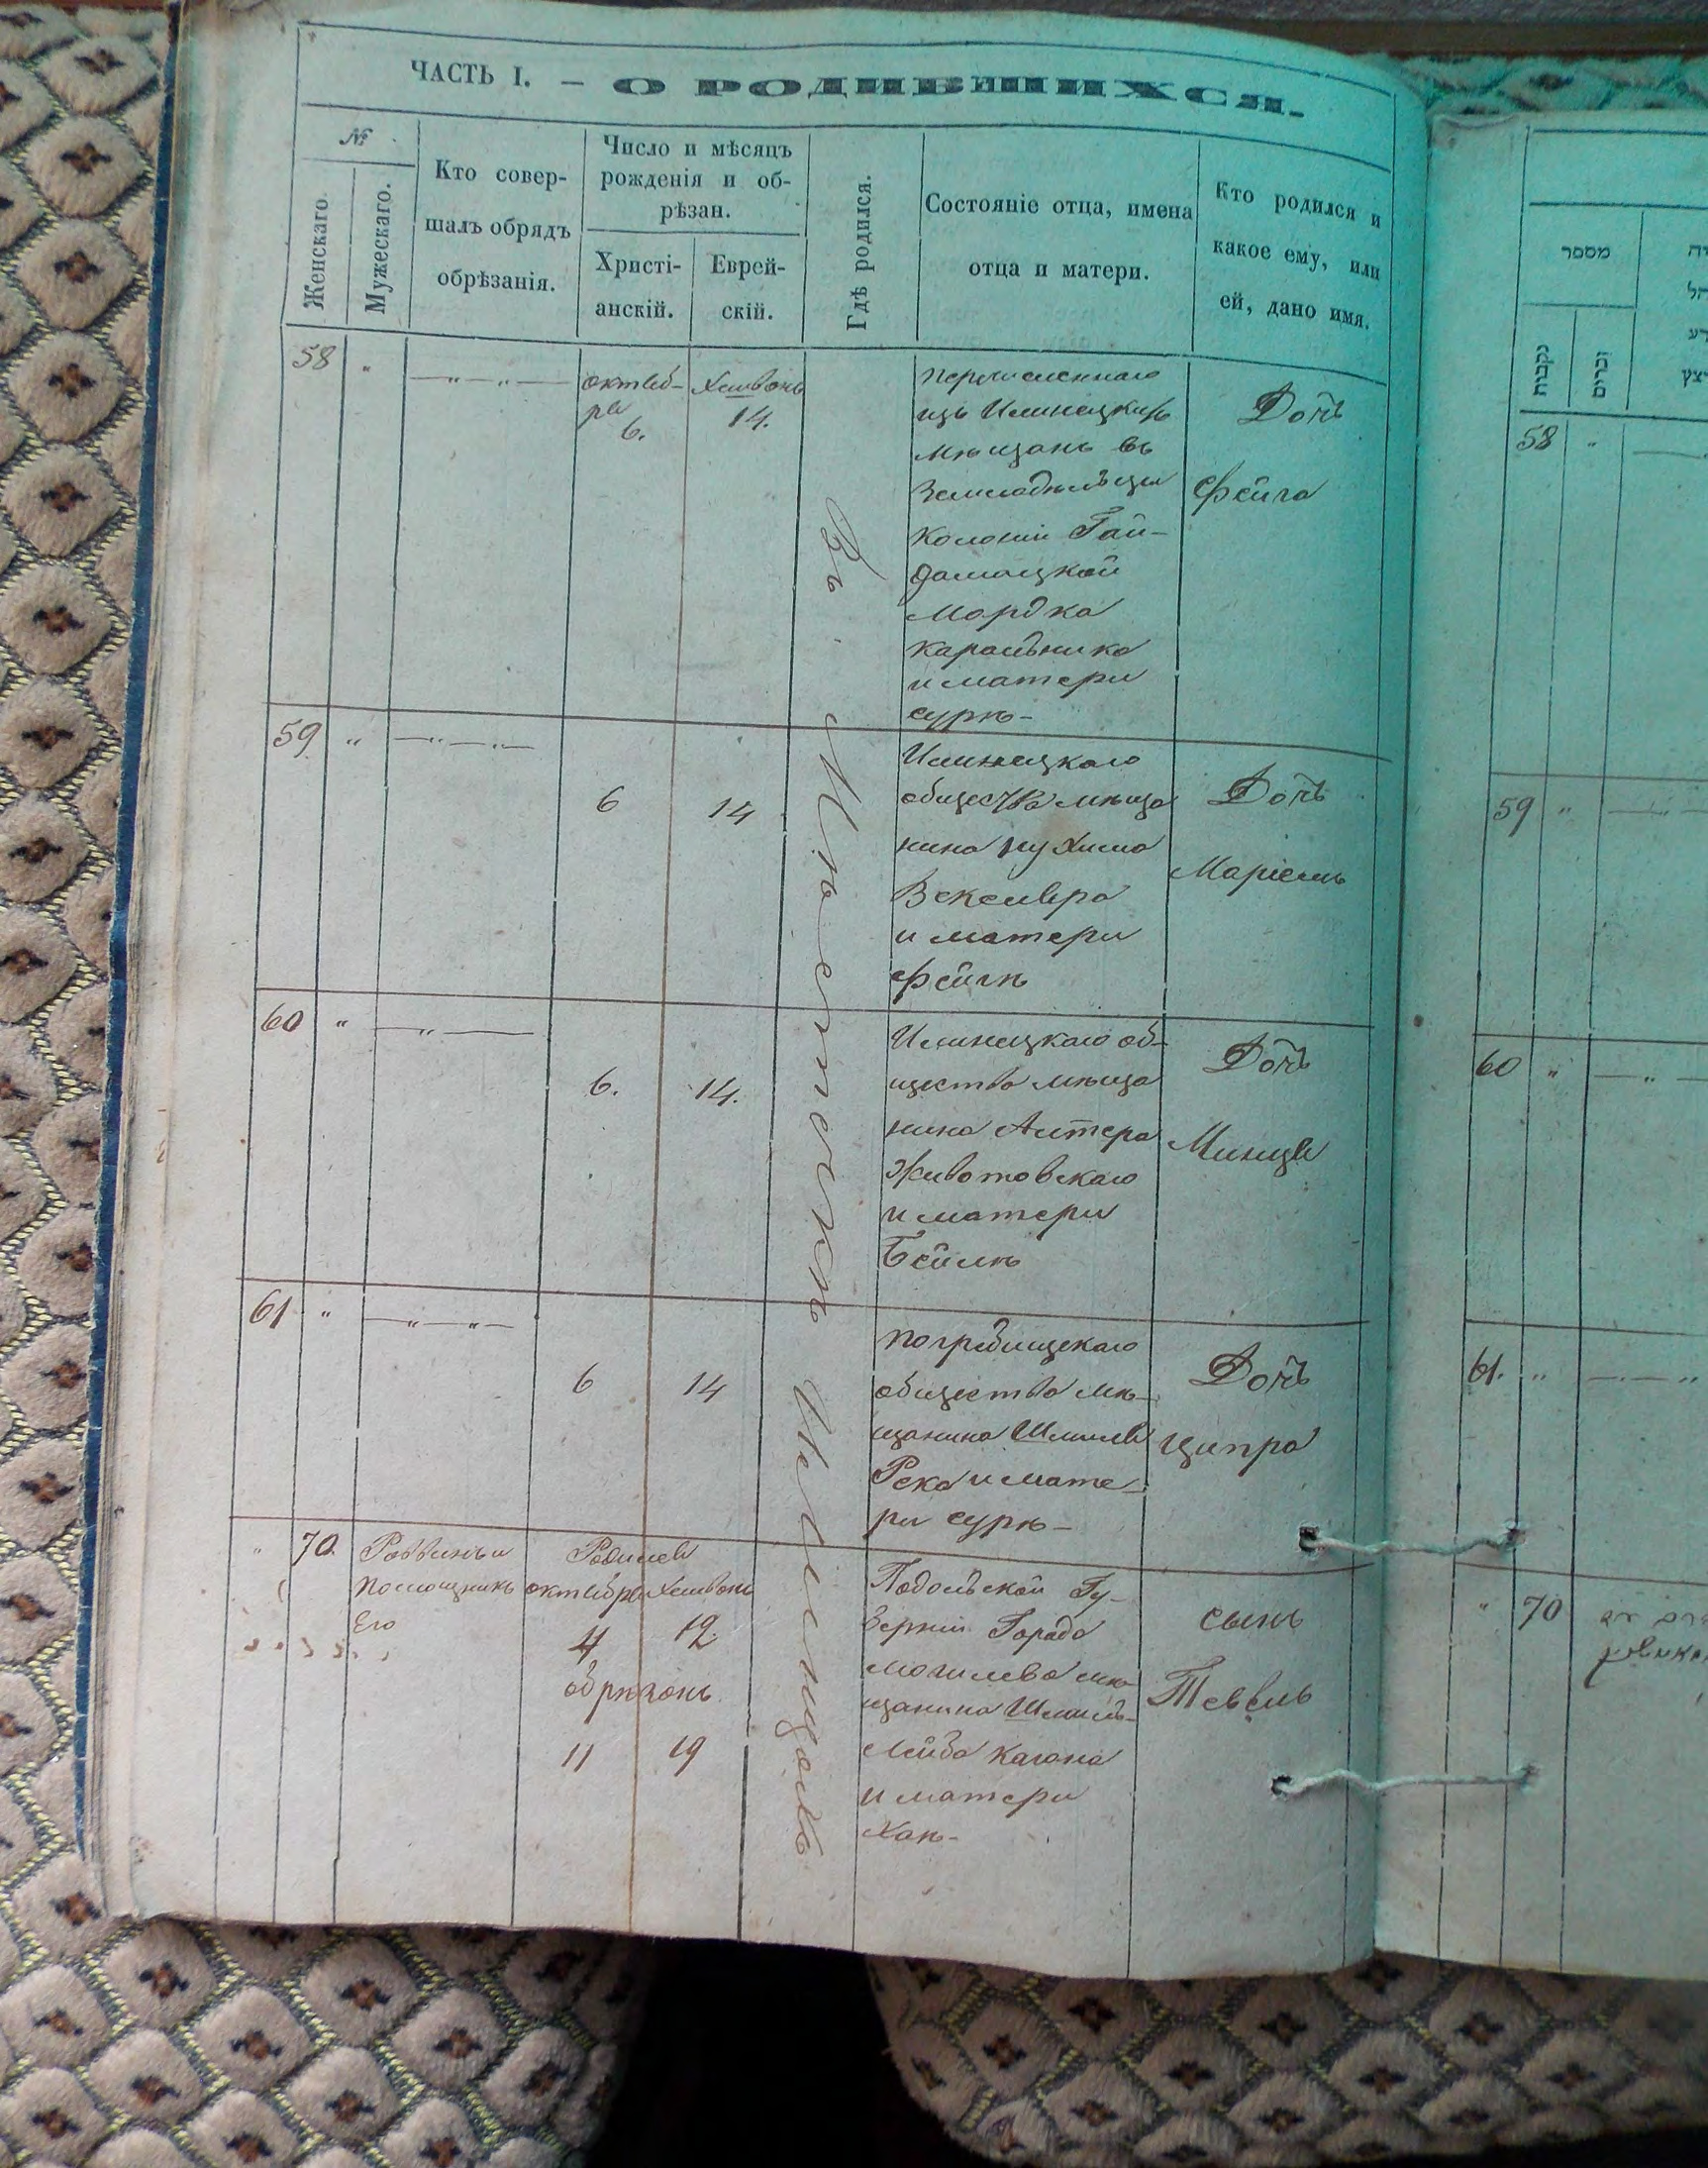 ЧАСТЬ I. — О РОДИВШИХСЯ.
№
Женскаго.
Мужескаго.
Кто совер-
шалъ обрядъ
обрѣзанія.
Число и мѣсяцъ
рожденія и об-
рѣзан.
Христі-
анскій.
Еврей-
скій.
Гдѣ родился.
Состояніе отца, имена
отца и матери.
Кто родился и
какое ему, или
ей, дано имя.
Въ Мѣстечкѣ Илинцахъ
58 " — " — " —
октяб-
ря
6.
Хешвонъ
14.
перечисленнаго
изъ Илинецкихъ
мѣщанъ въ
Земледѣльцы
колоніи Гай-
дамацкой
Мордка
Каральника
и матери
Сурѣ-
Дочь
Фейга
59 " — " — " —
6
14
Илинецкаго
общества мѣща
нина Нухима
Векслера
и матери
Фейгѣ
Дочь
Маріемъ
60 " — " —
6.
14.
Илинецкаго об-
щества мѣща
нина Алтера
Животовскаго
и матери
Бейлѣ
Дочь
Минця
61 " — " — " —
6
14
Погребищскаго
общества мѣ-
щанина Шмиля
Река и мате-
ри Сурѣ-
Дочь
Ципра
" 70. Раввинъ и
помощникъ
Его
Родился
октября Хешвонъ
4 12.
обрѣзанъ
11 19
Подольской Гу-
берніи Города
Могилева мѣ
щанина Шмиль-
Лейба Кагана
и матери
Хаѣ-
сынъ
Тевель
מספר
נקבות
זכרים
58 "
59 "
60 "
61. "
" 70